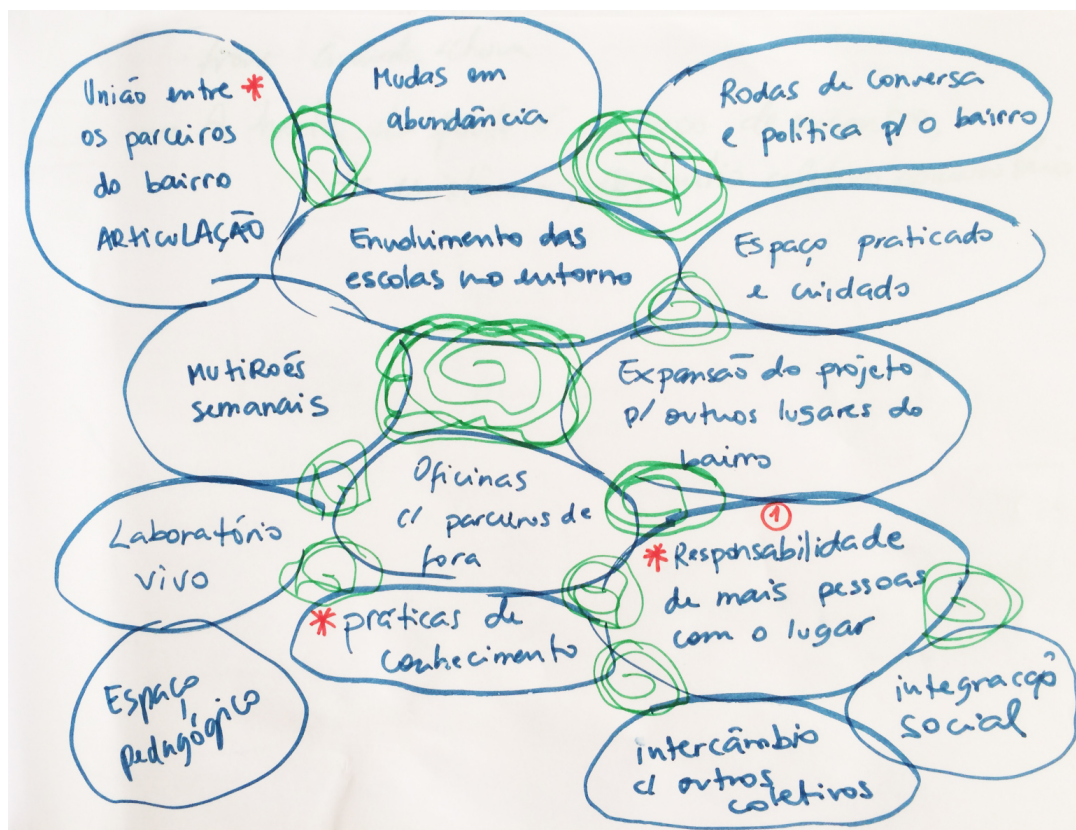 União entre *
os parceiros
do bairro
ARTICULAÇÃO
Mudas em
abundância
Rodas de conversa
e política p/ o bairro
Envolvimento das
escolas no entorno
Espaço praticado
e cuidado
MUTIRÕES
semanais
Expansão do projeto
p/ outros lugares do
bairro
Oficinas
c/ parceiros de
fora
Laboratório
vivo
1
* Responsabilidade
de mais pessoas
com o lugar
* práticas de
conhecimento
Espaço
pedagógico
integração
social
intercâmbio
c/ outros
coletivos